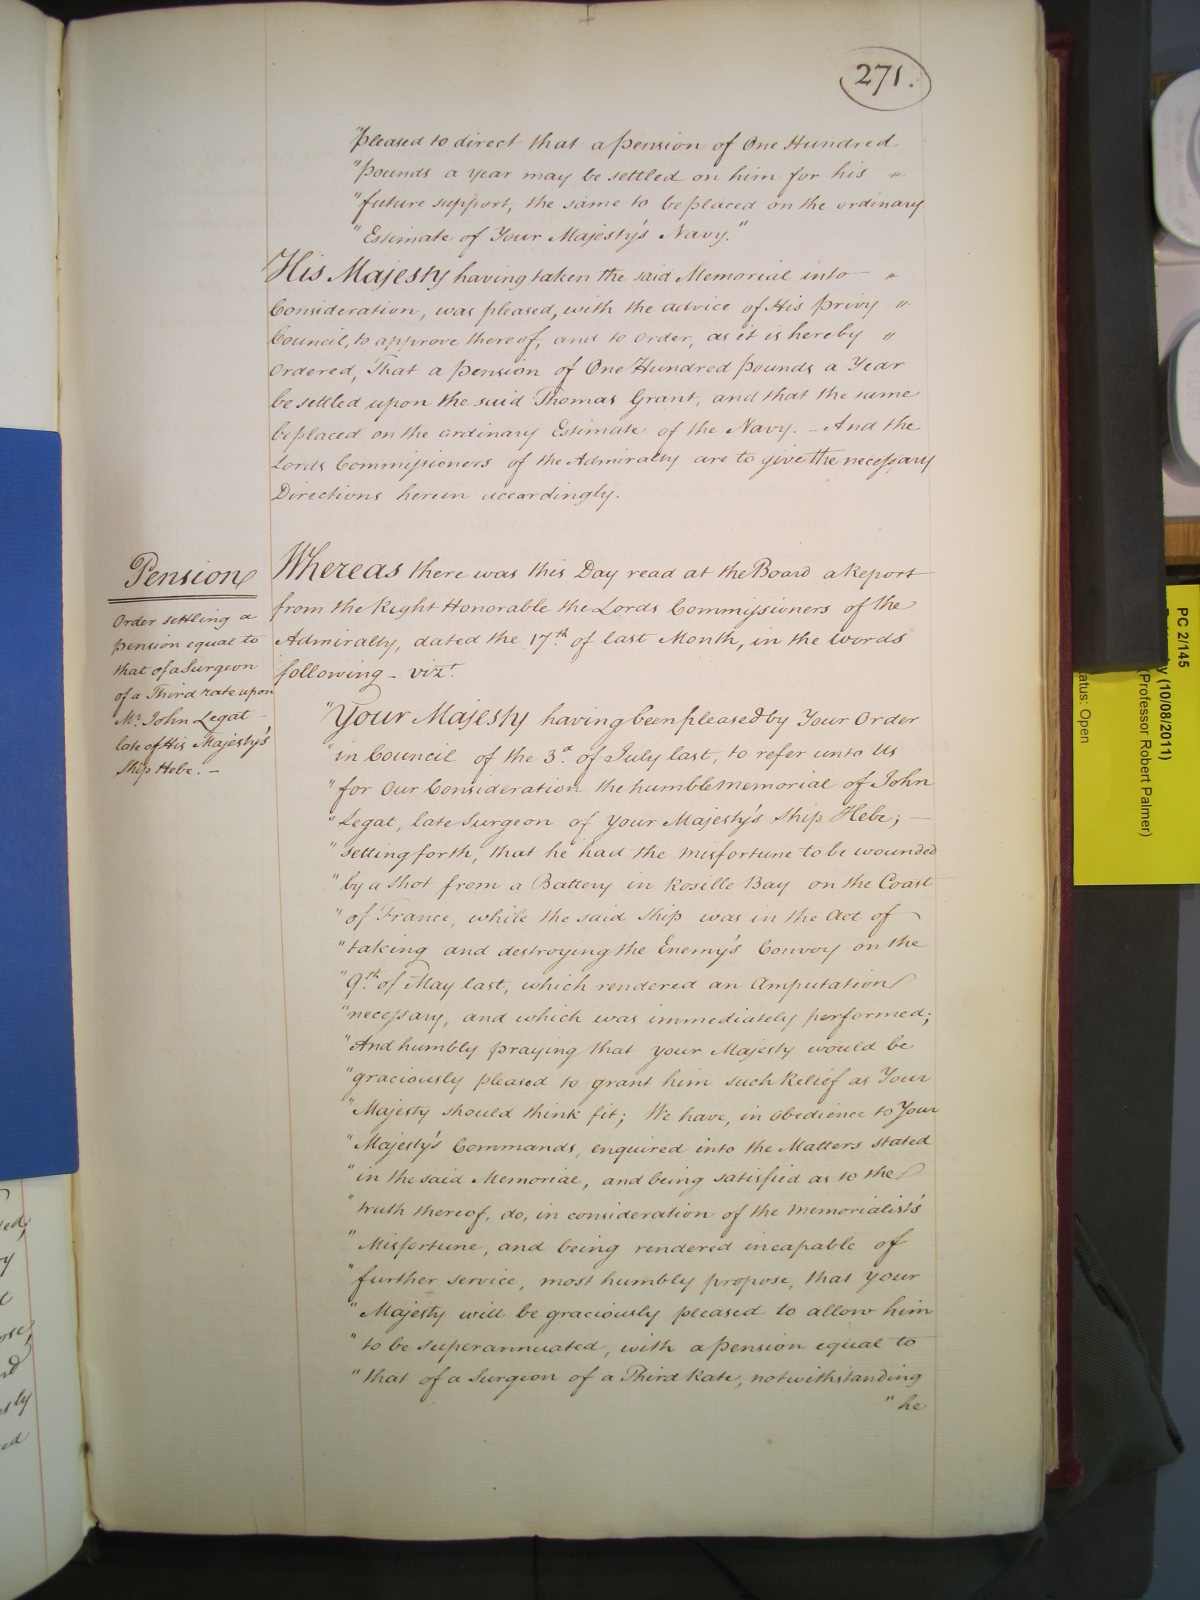 271.
"pleased to direct that a pension of One Hundred
"pounds a year may be settled on him for his "
"future support, the same to be placed on the ordinary
"Estimate of Your Majesty's Navy."
His Majesty having taken the said Memorial into "
Consideration, was pleased, with the advice of His Privy "
Council, to approve thereof, and to order, as it is hereby "
ordered, That a pension of One Hundred pounds a Year
be settled upon the said Thomas Grant, and that the same
be placed on the ordinary Estimate of the Navy. - And the
Lords Commissioners of the Admiralty are to give the necessary
Directions herein accordingly.
Pension
Order settling a
pension equal to
that of a Surgeon
of a Third rate upon
Mr. John Legat
late of His Majesty's
Ship Hebe. -
Whereas there was this Day read at the Board a Report
from the Right Honorable the Lords Commissioners of the
Admiralty, dated the 17th of last Month, in the words
following - vizt.
"Your Majesty having been pleased by Your Order
"in Council of the 3d. of July last, to refer unto Us
"for Our Consideration the humble memorial of John
"Legat, late Surgeon of Your Majesty's Ship Hebe; -
"setting forth, that he had the misfortune to be wounded
"by a Shot from a Battery in Rosille Bay on the Coast
"of France, while the said Ship was in the Act of
"taking and destroying the Enemy's Convoy on the
"9th. of May last, which rendered an Amputation
"necessary, and which was immediately performed;
"And humbly praying that your Majesty would be
"graciously pleased to grant him such Relief as Your
"Majesty should think fit; We have, in obedience to Your
"Majesty's Commands, enquired into the Matters stated
"in the said Memorial, and being satisfied as to the
"truth thereof, do, in consideration of the Memorialist's
"Misfortune, and being rendered incapable of
"further service, most humbly propose, that your
"Majesty will be graciously pleased to allow him
"to be superannuated, with a pension equal to
"that of a Surgeon of a Third Rate, notwithstanding
"he
PC 2/145
(10/08/2011)
(Professor Robert Palmer)
Open